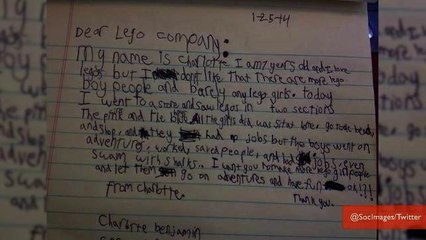 1-25-14
Dear Lego company:
My name is Charlotte. I am 7 years old and I love
legos but I don't like that There are more lego
boy people and barely any lego girls. today
I went to a store and saw legos in two sections
The pink and the blue. All the girls did was sit at home, go to the beach,
and shop, and they had no jobs but the boys went on
adventures, worked, saved people, and had jobs, even
swam with sharks. I want you to make more lego girl people
and let them go on adventures and have fun ok!?!
Thank you.
from charlotte.
Charlotte benjamin
@SocImages/Twitter